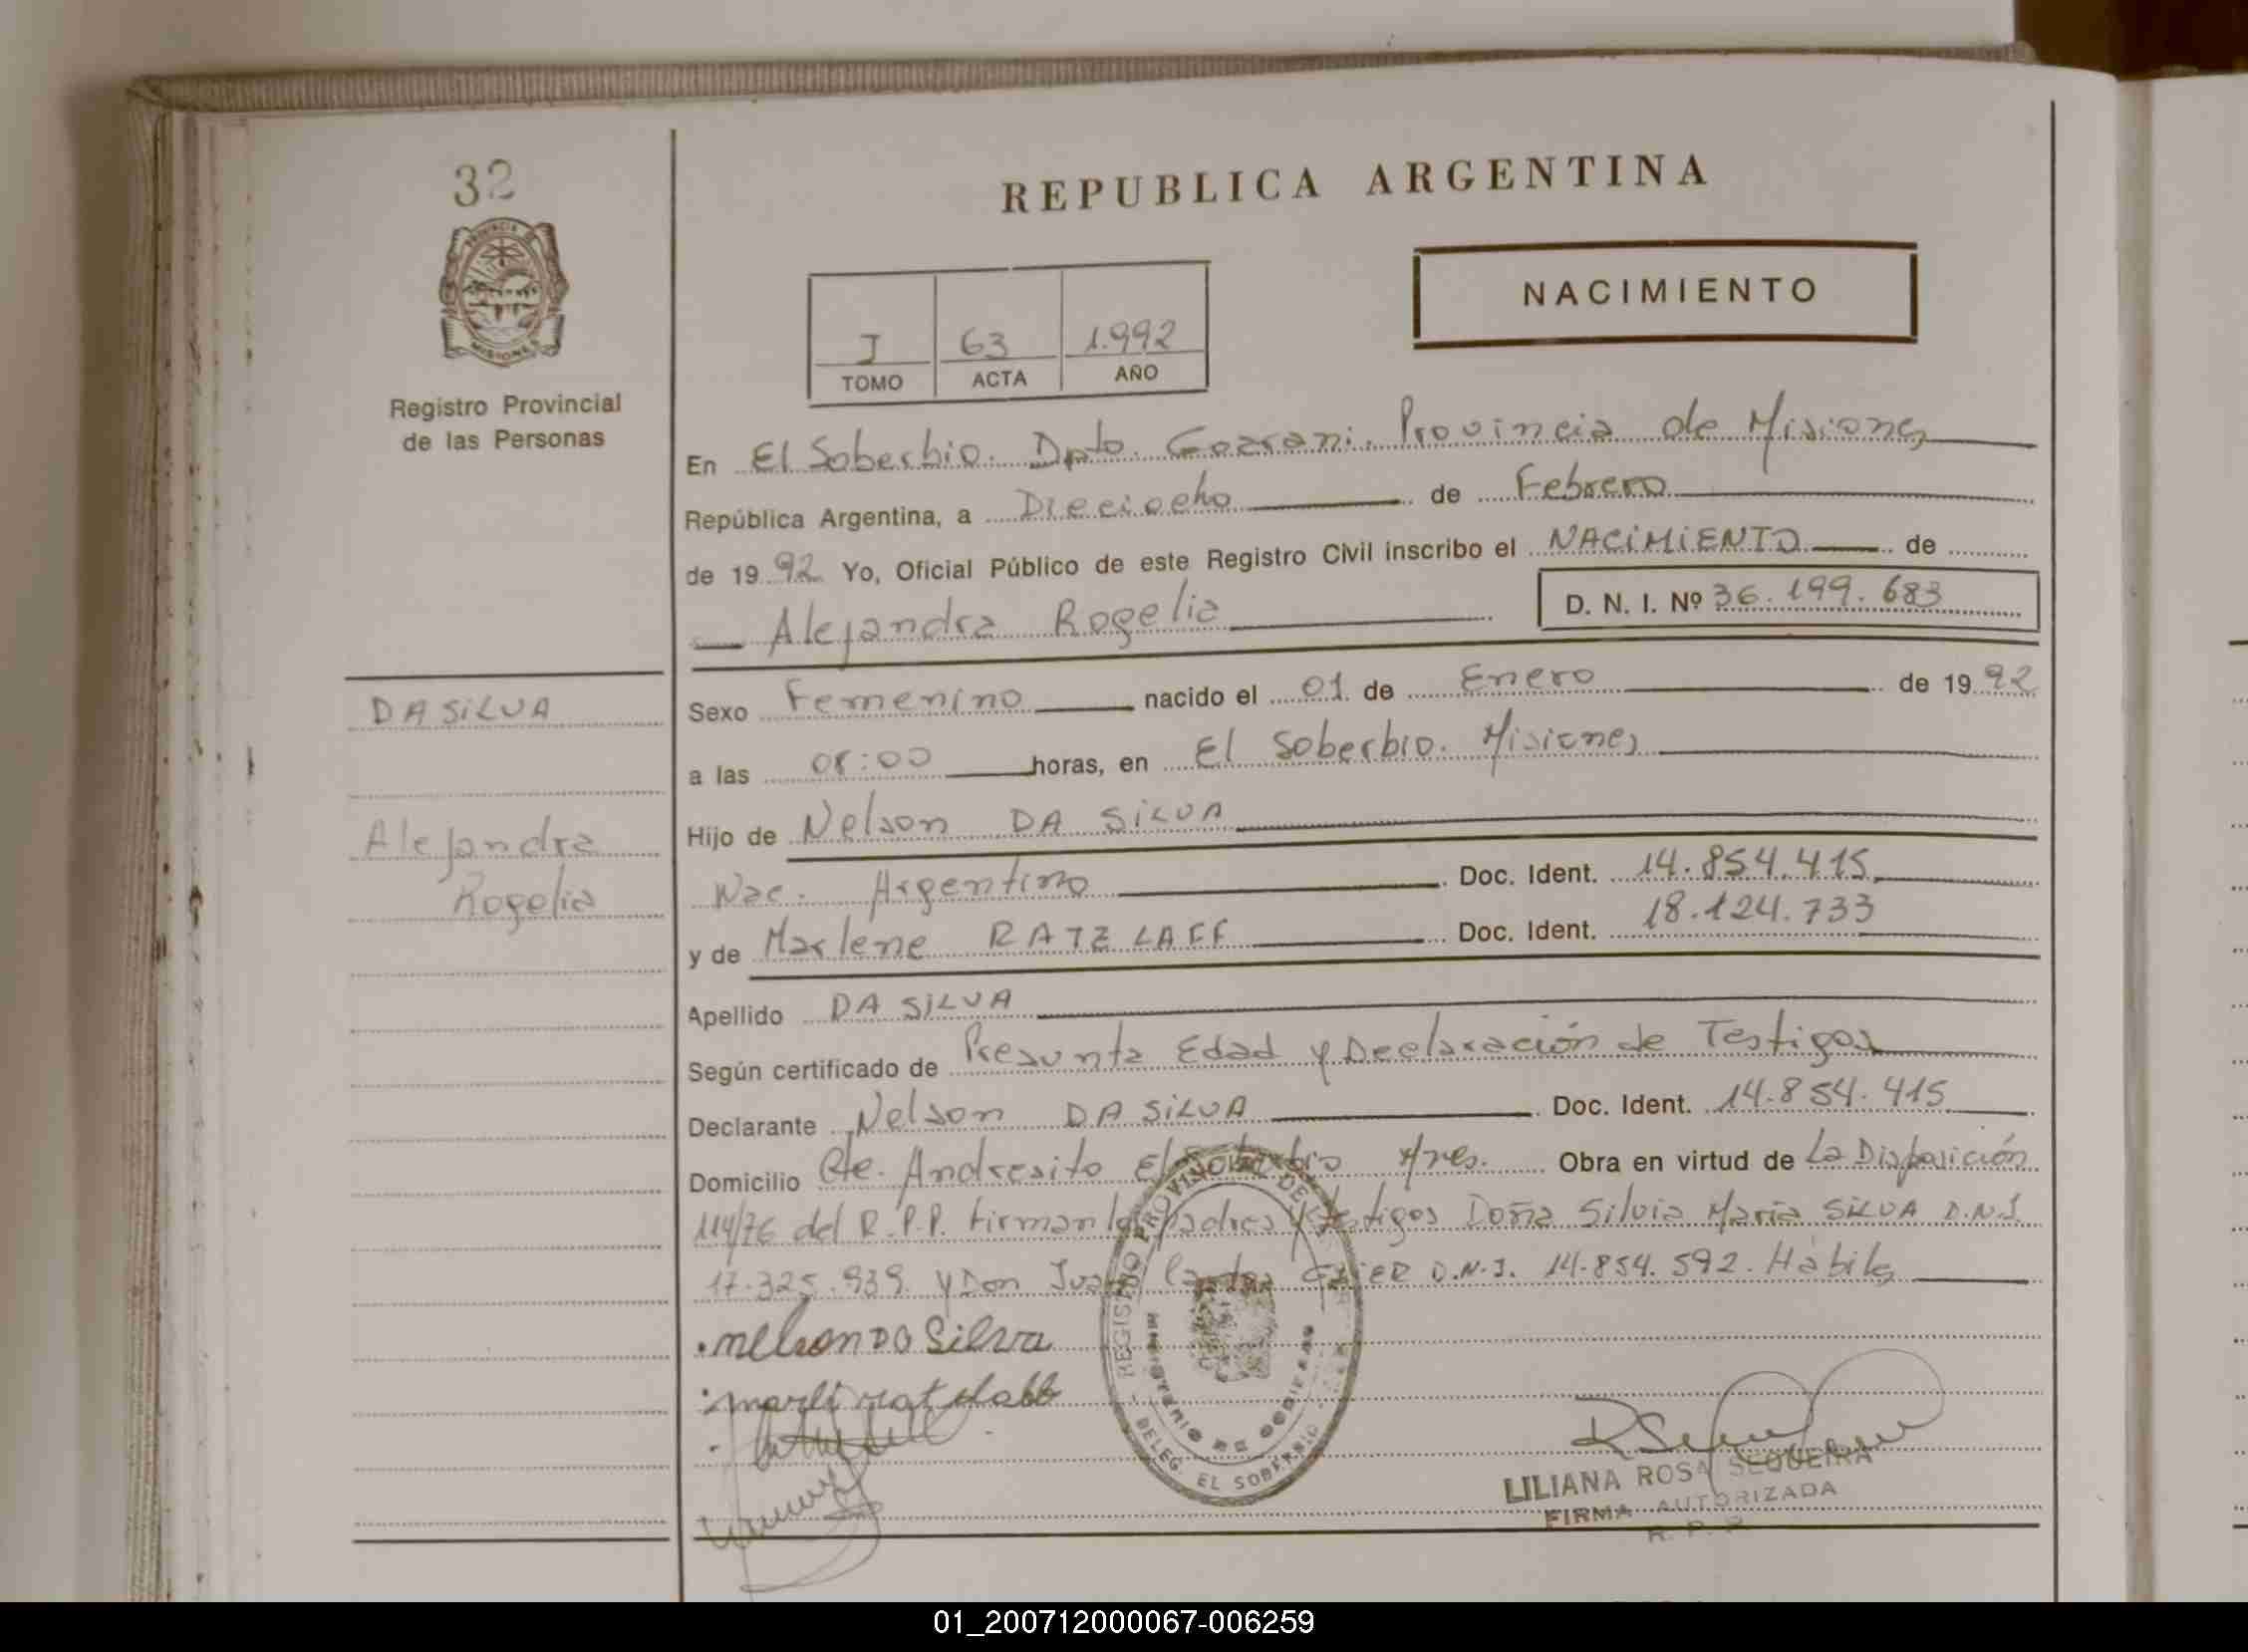 32
PROVINCIA DE
MISIONES
Registro Provincial
de las Personas
DA SILVA
Alejandra
Rogelia
REPUBLICA ARGENTINA
NACIMIENTO
I 63 1.992
TOMO ACTA AÑO
En El Soberbio. Dpto. Guarani. Provincia de Misiones
República Argentina, a Dieciocho de Febrero
de 1992 Yo, Oficial Público de este Registro Civil inscribo el NACIMIENTO de
Alejandra Rogelia D. N. I. Nº 36.199.683
Sexo Femenino nacido el 01 de Enero de 1992
a las 08:00 horas, en El Soberbio. Misiones
Hijo de Nelson DA SILVA
Nac. Argentino Doc. Ident. 14.854.415
y de Marlene RATZLAFF Doc. Ident. 18.124.733
Apellido DA SILVA
Según certificado de Presunta Edad y Declaración de Testigos
Declarante Nelson DA SILVA Doc. Ident. 14.854.415
Domicilio Cte. Andresito El Soberbio Mnes. Obra en virtud de La Disposición
114/76 del R.P.P. Firman los padres y testigos Doña Silvia Maria SILVA D.N.I.
17.325.939. Y Don Juan Carlos D.N.I. 14.854.592. Hábiles
nelson DA Silva
marli
REGISTRO PROVINCIAL DE LAS
MINISTERIO DE GOBIERNO
DELEG. EL SOBERBIO
LILIANA ROSA SEQUEIRA
FIRMA AUTORIZADA
R. P. P.
01_200712000067-006259